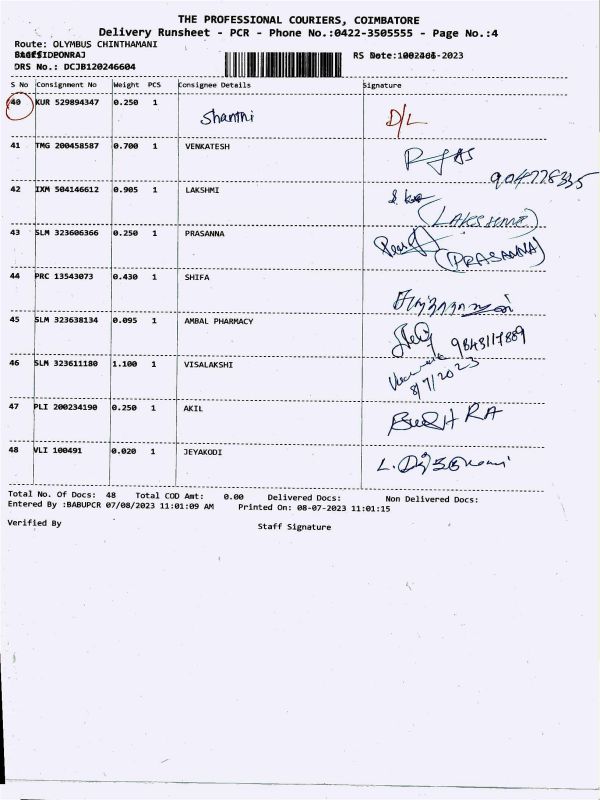 THE PROFESSIONAL COURIERS, COIMBATORE
Delivery Runsheet - PCR - Phone No.:0422-3505555 - Page No.:4
Route: OLYMBUS CHINTHAMANI
RS
DRS No.: DCJB120246604
S No Consignment No Weight PCS Consignee Details Signature
40 KUR 529894347 0.250 1 Shanthi D/L
41 TMG 200458587 0.700 1 VENKATESH
42 IXM 504146612 0.905 1 LAKSHMI
(LAKSHMI)
43 SLM 323606366 0.250 1 PRASANNA
(PRASANNA)
44 PRC 13543073 0.430 1 SHIFA
45 SLM 323638134 0.095 1 AMBAL PHARMACY
46 SLM 323611180 1.100 1 VISALAKSHI
8/7/2023
47 PLI 200234190 0.250 1 AKIL
48 VLI 100491 0.020 1 JEYAKODI
Total No. Of Docs: 48 Total COD Amt: 0.00 Delivered Docs: Non Delivered Docs:
Entered By :BABUPCR 07/08/2023 11:01:09 AM Printed On: 08-07-2023 11:01:15
Verified By Staff Signature